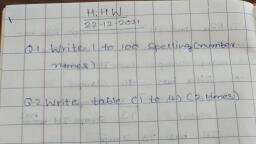 H.H.W
22-12-2021
Q.1 Write 1 to 100 spelling (number
names)
Q.2 Write table (1 to 4) (2 times)